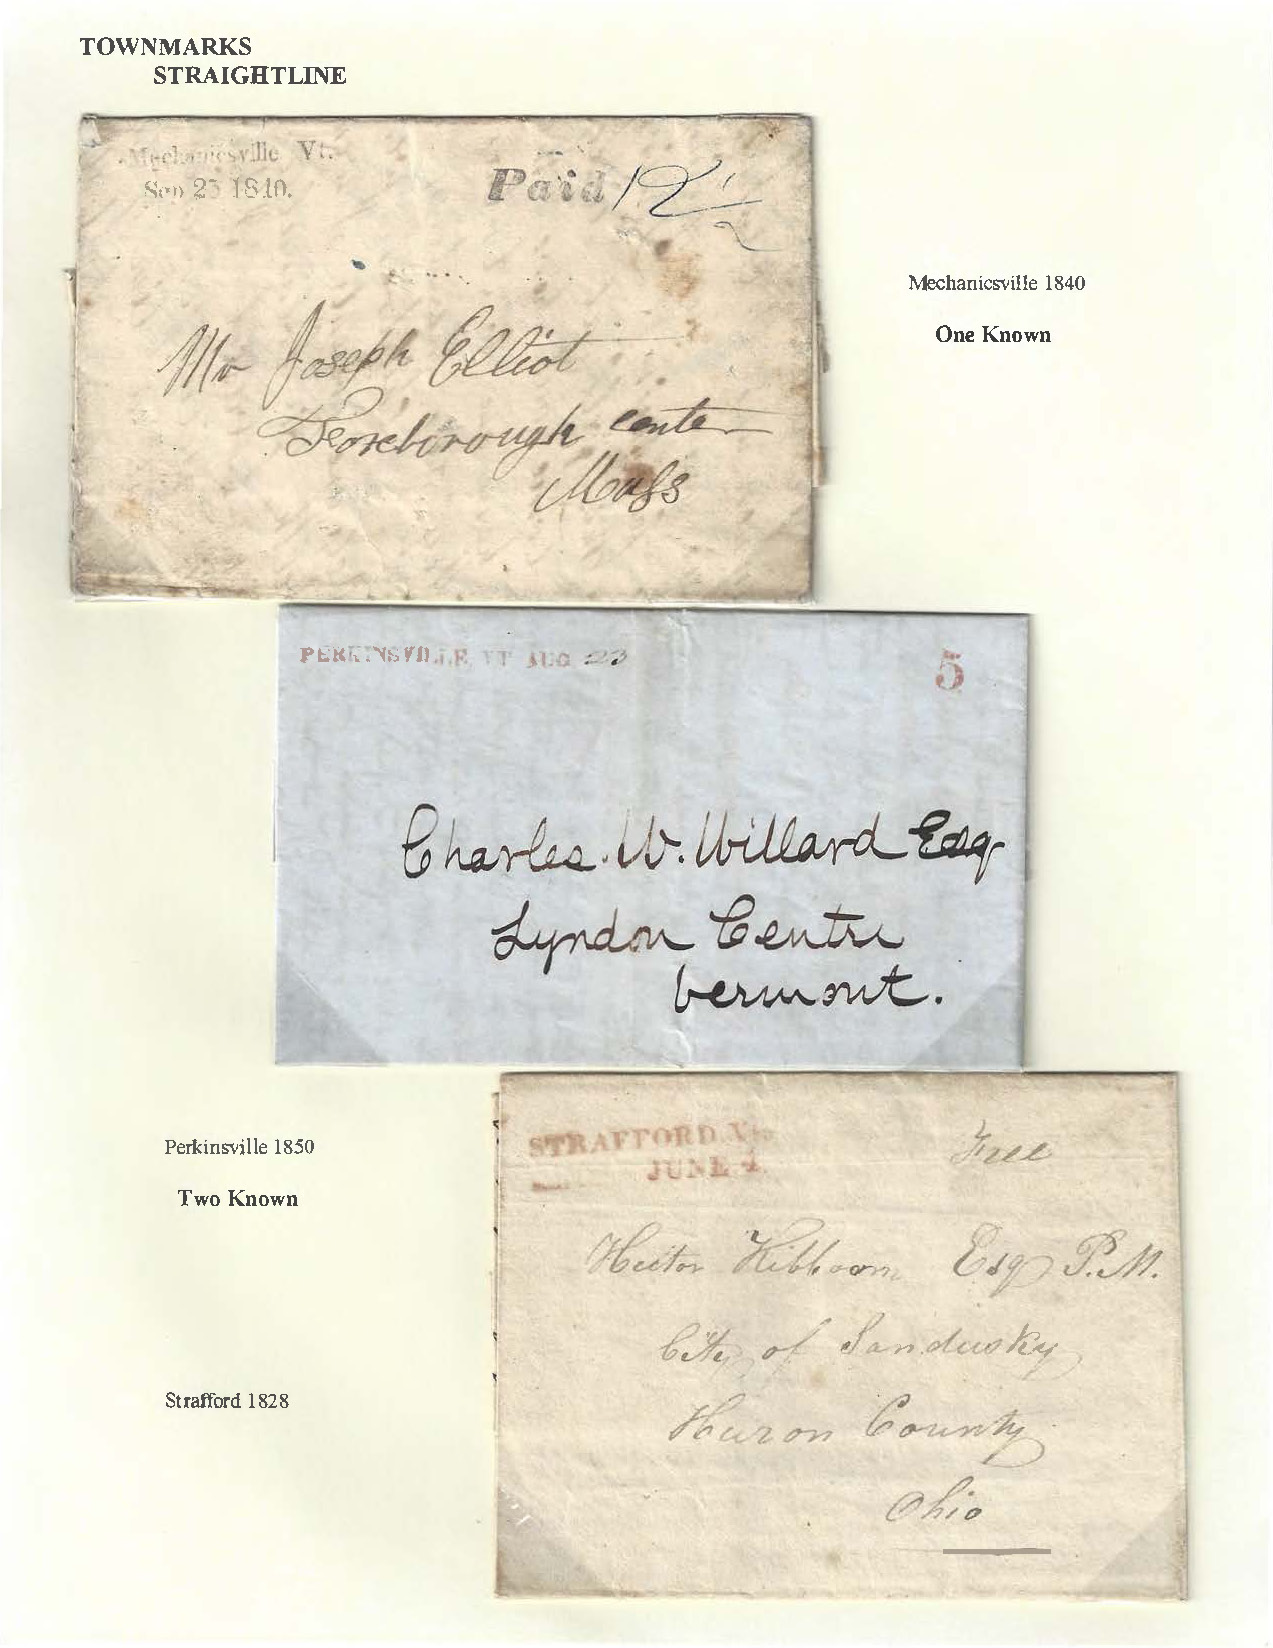 TOWNMARKS
STRAIGHTLINE
Mechanicsville Vt.
Sep 23 1840.
Paid 12 1/2
Mr Joseph Elliot
Foxborough center
Mass
Mechanicsville 1840
One Known
PERKINSVILLE VT AUG 23
5
Charles. W. Willard Esq
Lyndon Centre
Vermont.
Perkinsville 1850
Two Known
STRAFFORD Vt.
JUNE 4.
Free
Hector Kibborn Esq P.M.
City of Sandusky
Huron County
Ohio
Strafford 1828